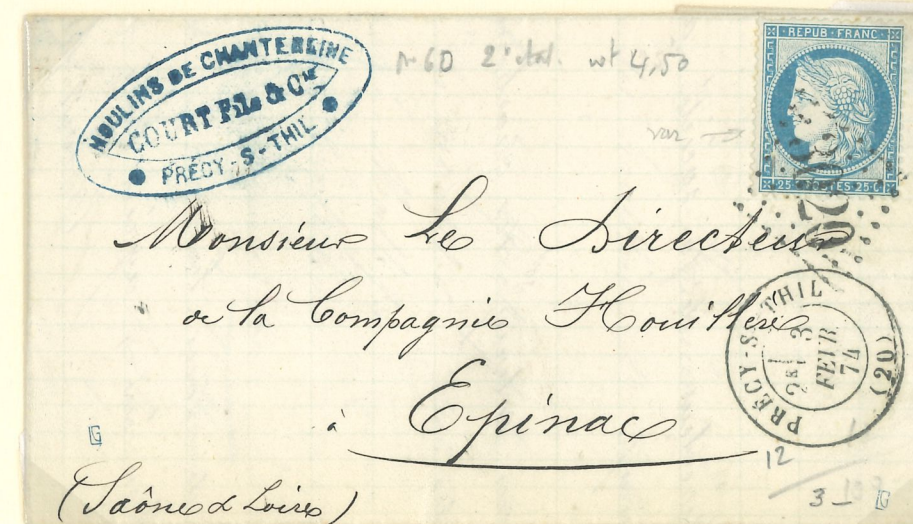 MOULINS DE CHANTEREINE
COURT Fils & Cie
PRÉCY-S-THIL
n°60 2e état. wt 4,50
var →
REPUB·FRANC
25 25·C
Monsieur Le Directeur
de la Compagnie Houillère
à Epinac
(Saône & Loire)
PRÉCY-S-THIL
2E/ 3
FEVR.
74
(20)
12
3 –
G
G